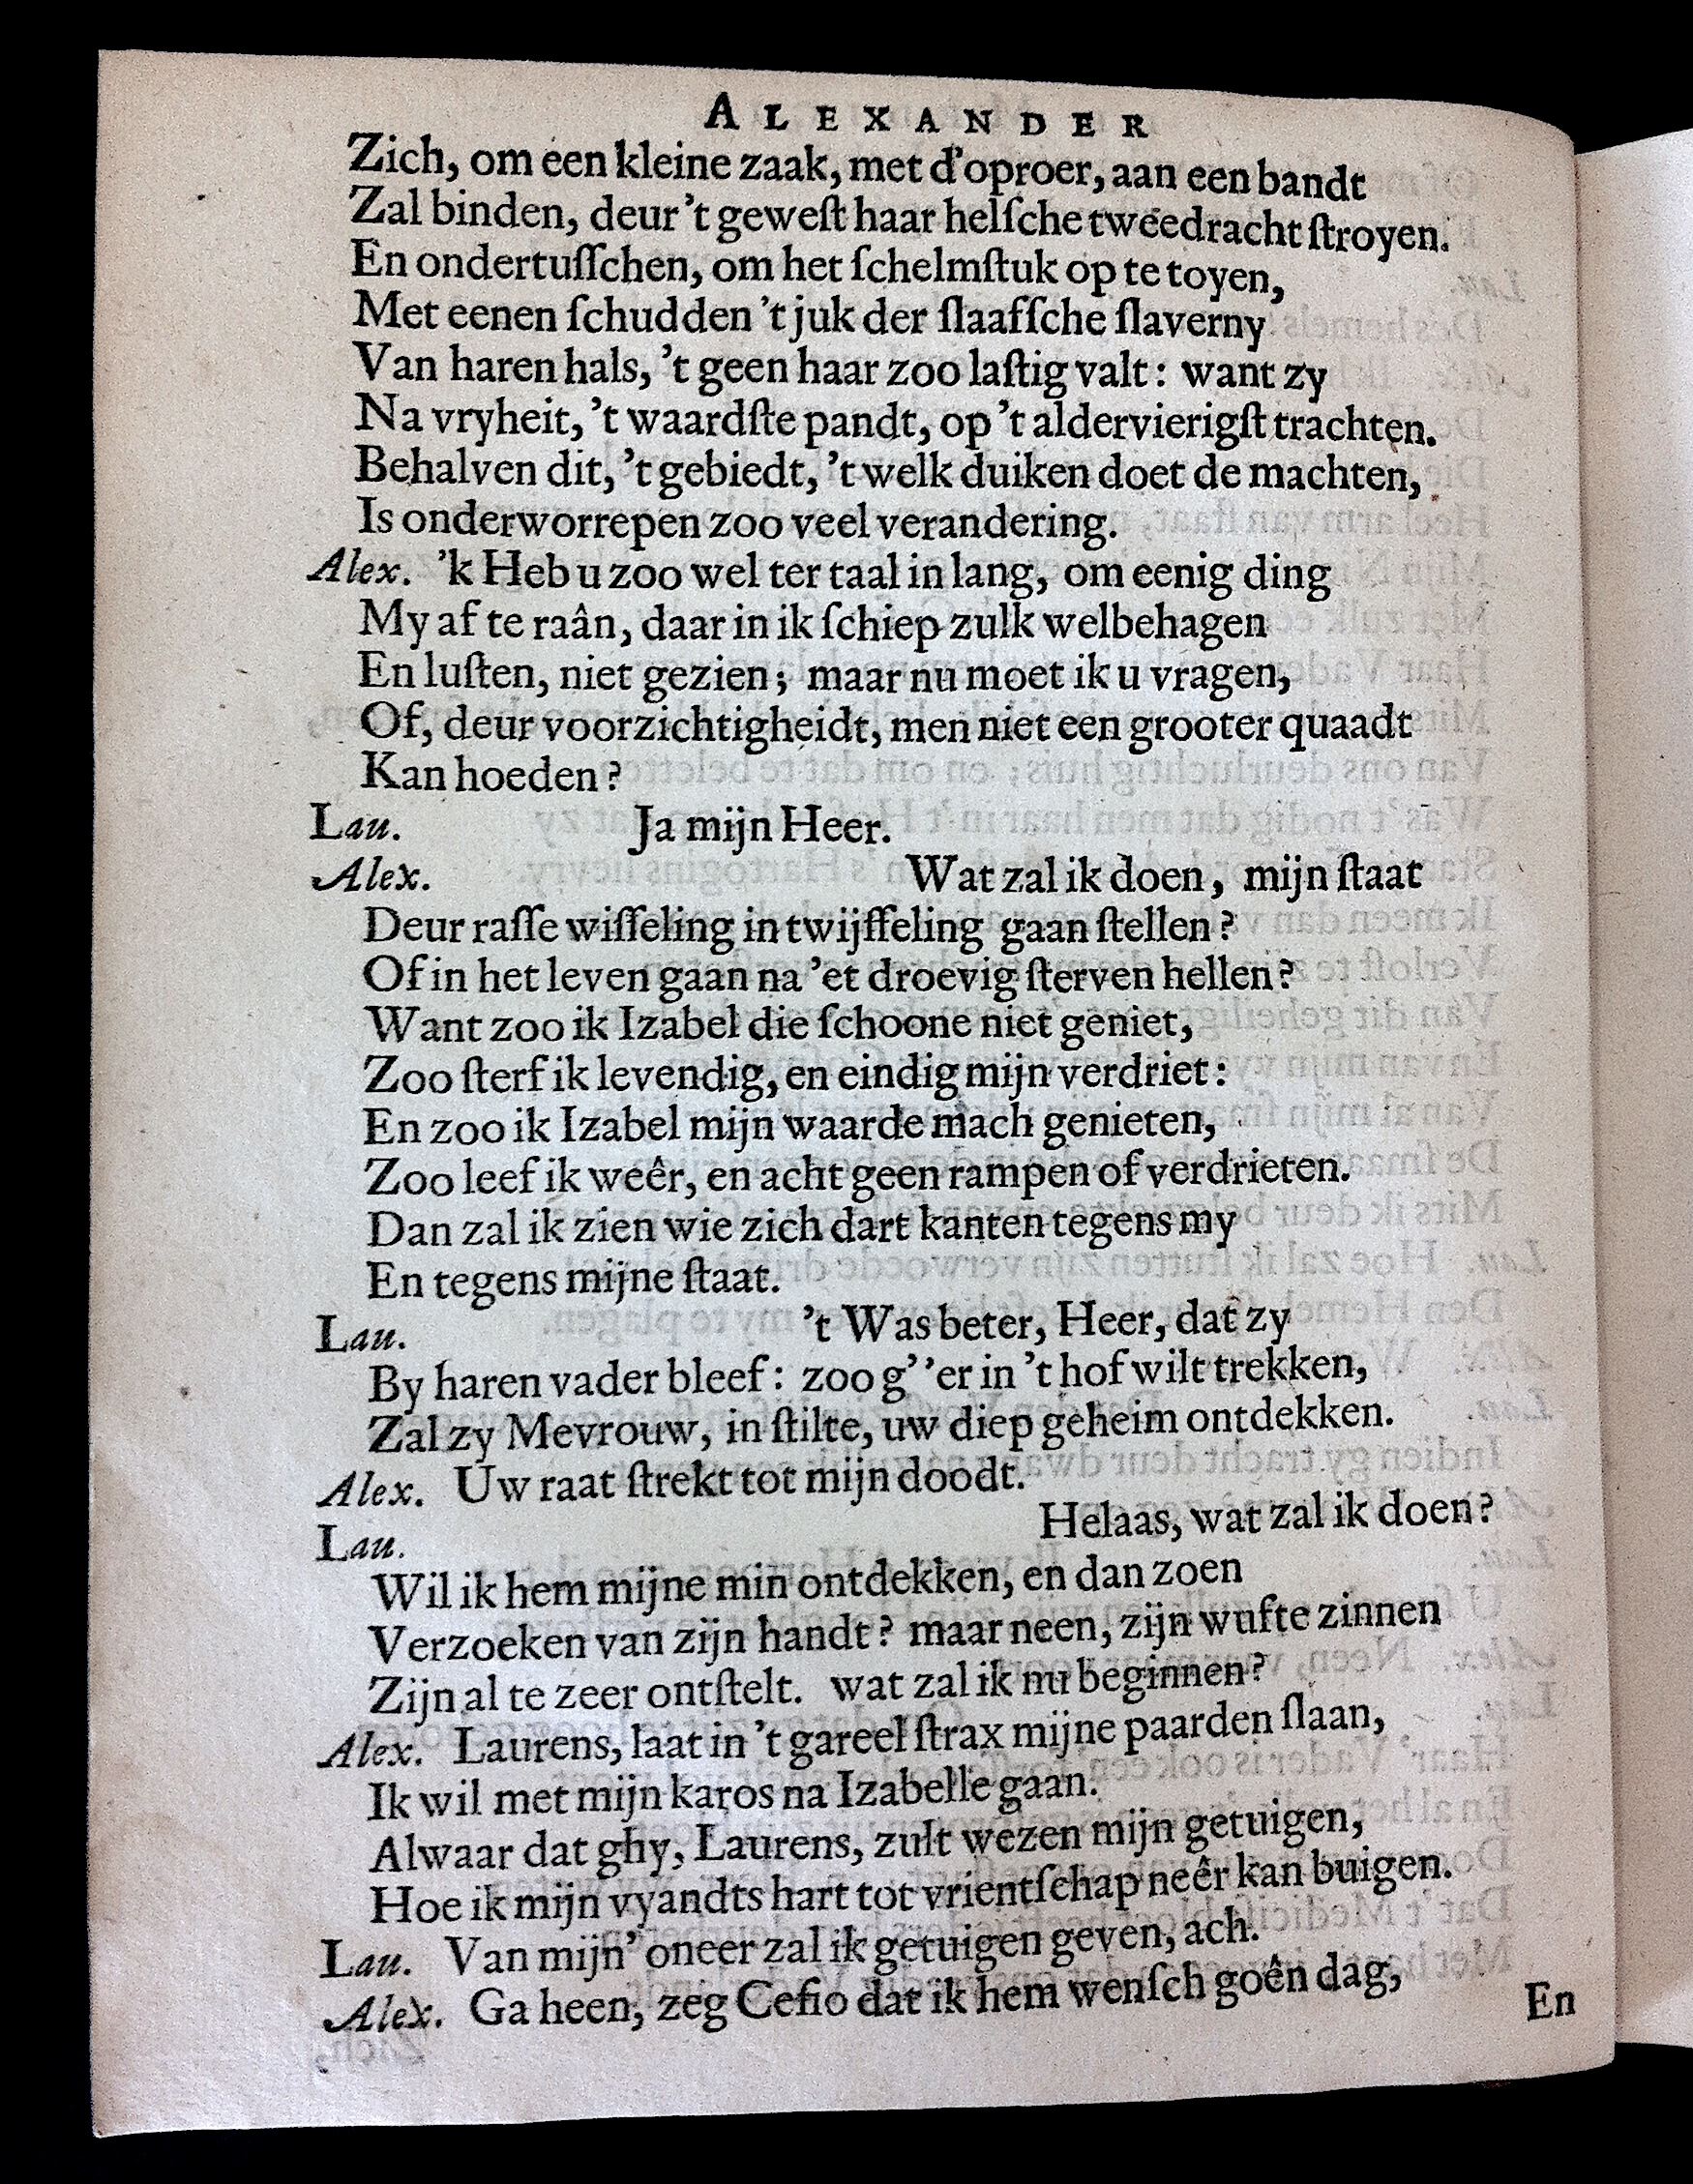 ALEXANDER
Zich, om een kleine zaak, met d'oproer, aan een bandt
Zal binden, deur 't geweſt haar helſche tweedracht ſtroyen.
En ondertuſſchen, om het ſchelmſtuk op te toyen,
Met eenen ſchudden 't juk der ſlaafſche ſlaverny
Van haren hals, 't geen haar zoo laſtig valt: want zy
Na vryheit, 't waardſte pandt, op 't aldervierigſt trachten.
Behalven dit, 't gebiedt, 't welk duiken doet de machten,
Is onderworrepen zoo veel verandering.
Alex. 'k Heb u zoo wel ter taal in lang, om eenig ding
My af te raân, daar in ik ſchiep zulk welbehagen
En luſten, niet gezien; maar nu moet ik u vragen,
Of, deur voorzichtigheidt, men niet een grooter quaadt
Kan hoeden?
Lau. Ja mijn Heer.
Alex. Wat zal ik doen, mijn ſtaat
Deur raſſe wiſſeling in twijffeling gaan ſtellen?
Of in het leven gaan na 'et droevig ſterven hellen?
Want zoo ik Izabel die ſchoone niet geniet,
Zoo ſterf ik levendig, en eindig mijn verdriet:
En zoo ik Izabel mijn waarde mach genieten,
Zoo leef ik weêr, en acht geen rampen of verdrieten.
Dan zal ik zien wie zich dart kanten tegens my
En tegens mijne ſtaat.
Lau. 't Was beter, Heer, dat zy
By haren vader bleef: zoo g' 'er in 't hof wilt trekken,
Zal zy Mevrouw, in ſtilte, uw diep geheim ontdekken.
Alex. Uw raat ſtrekt tot mijn doodt.
Lau. Helaas, wat zal ik doen?
Wil ik hem mijne min ontdekken, en dan zoen
Verzoeken van zijn handt? maar neen, zijn wufte zinnen
Zijn al te zeer ontſtelt. wat zal ik nu beginnen?
Alex. Laurens, laat in 't gareel ſtrax mijne paarden ſlaan,
Ik wil met mijn karos na Izabelle gaan.
Alwaar dat ghy, Laurens, zult wezen mijn getuigen,
Hoe ik mijn vyandts hart tot vrientſchap neêr kan buigen.
Lau. Van mijn' oneer zal ik getuigen geven, ach.
Alex. Ga heen, zeg Ceſio dat ik hem wenſch goên dag,
En